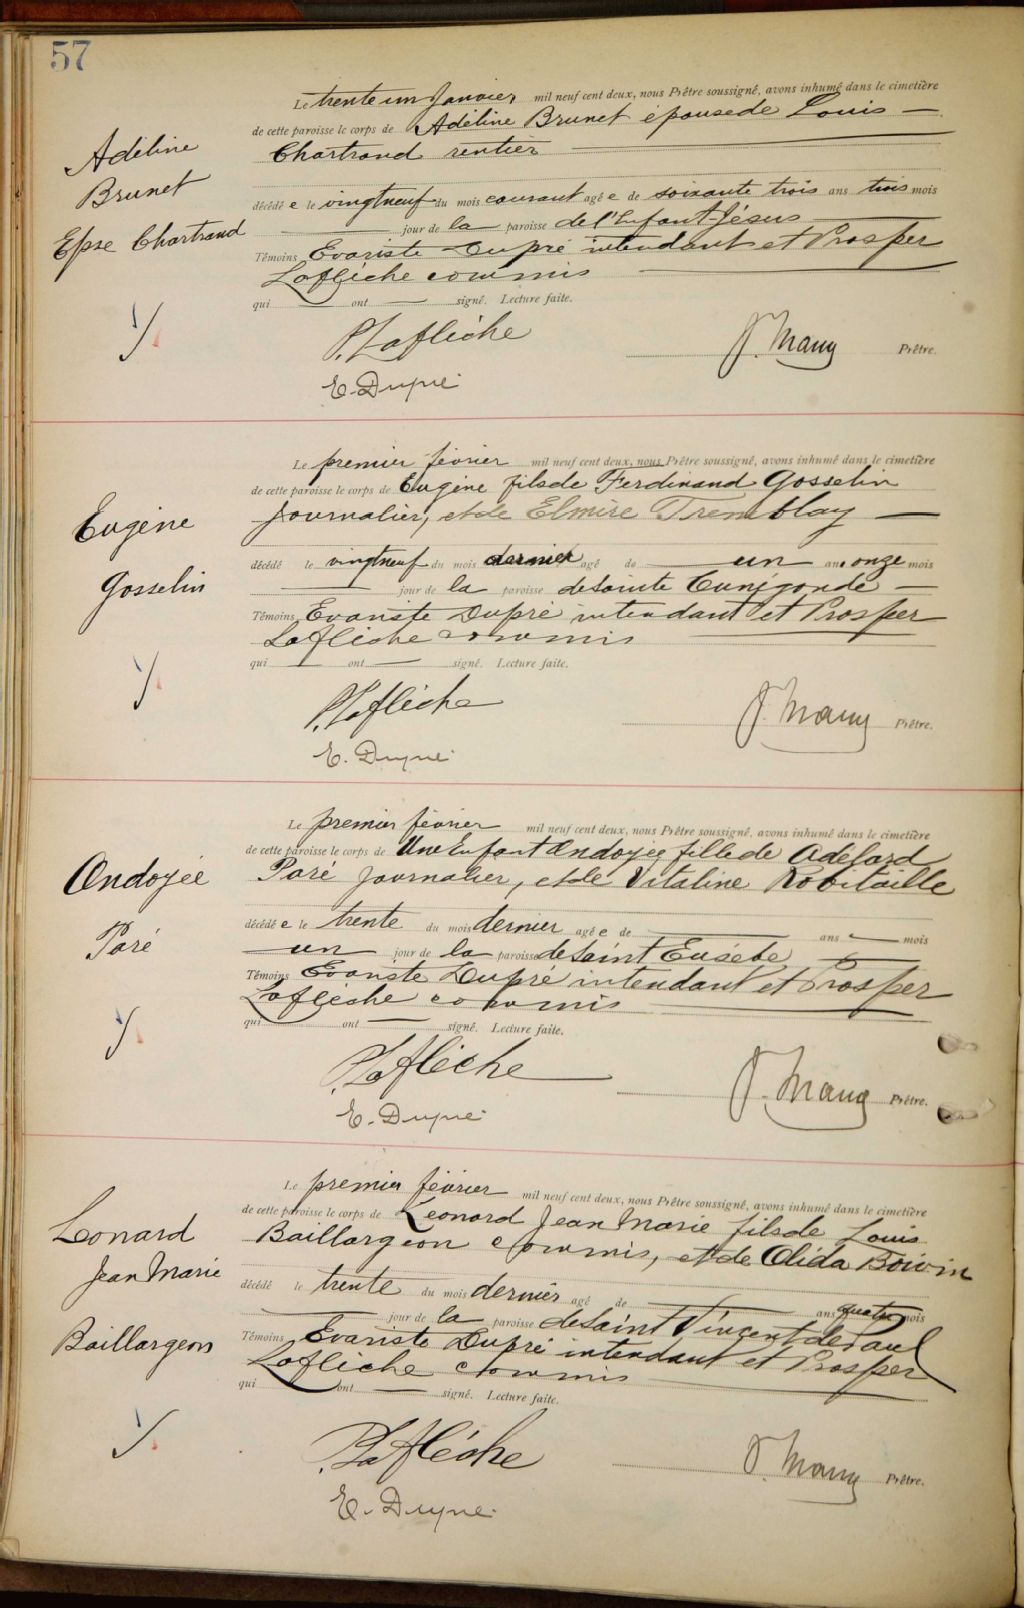 57
Le trente un Janvier mil neuf cent deux, nous Prêtre soussigné, avons inhumé dans le cimetière
de cette paroisse le corps de Adéline Brunet épouse de Louis —
Adéline
Brunet
Epse Chartrand
Chartrand rentier
décédé e le vingt neuf du mois courant agé e de soixante trois ans trois mois
jour de la paroisse de l'Enfant-Jésus
Témoins Evariste Dupré intendant et Prosper
Laflèche commis
qui — ont — signé. Lecture faite.
P. Laflèche
J. Mauy Prêtre.
E. Dupré
Le premier février mil neuf cent deux, nous Prêtre soussigné, avons inhumé dans le cimetière
de cette paroisse le corps de Eugène fils de Ferdinand Gosselin
Eugène
Gosselin
journalier, et de Elmire Tremblay —
décédé le vingt neuf du mois dernier agé de — un an onze mois
jour de la paroisse de Sainte Cunégonde —
Témoins Evariste Dupré intendant et Prosper
Laflèche commis
qui — ont — signé. Lecture faite.
P. Laflèche
J. Mauy Prêtre.
E. Dupré
Le premier février mil neuf cent deux, nous Prêtre soussigné, avons inhumé dans le cimetière
de cette paroisse le corps de Une Enfant Ondoyée fille de Adélard
Ondoyée
Paré
Paré journalier, et de Vitaline Robitaille
décédé e le trente du mois dernier agé e de — ans — mois
un jour de la paroisse de Saint Eusèbe
Témoins Evariste Dupré intendant et Prosper
Laflèche commis
qui ont — signé. Lecture faite.
P. Laflèche
J. Mauy Prêtre.
E. Dupré
Le premier février mil neuf cent deux, nous Prêtre soussigné, avons inhumé dans le cimetière
de cette paroisse le corps de Léonard Jean Marie fils de Louis
Lonard
Jean Marie
Baillargeon
Baillargeon commis, et de Olida Boivin
décédé le trente du mois dernier agé de — ans quatre mois
jour de la paroisse de Saint Vincent de Paul
Témoins Evariste Dupré intendant et Prosper
Laflèche commis
qui — ont — signé. Lecture faite.
P. Laflèche
J. Mauy Prêtre.
E. Dupré